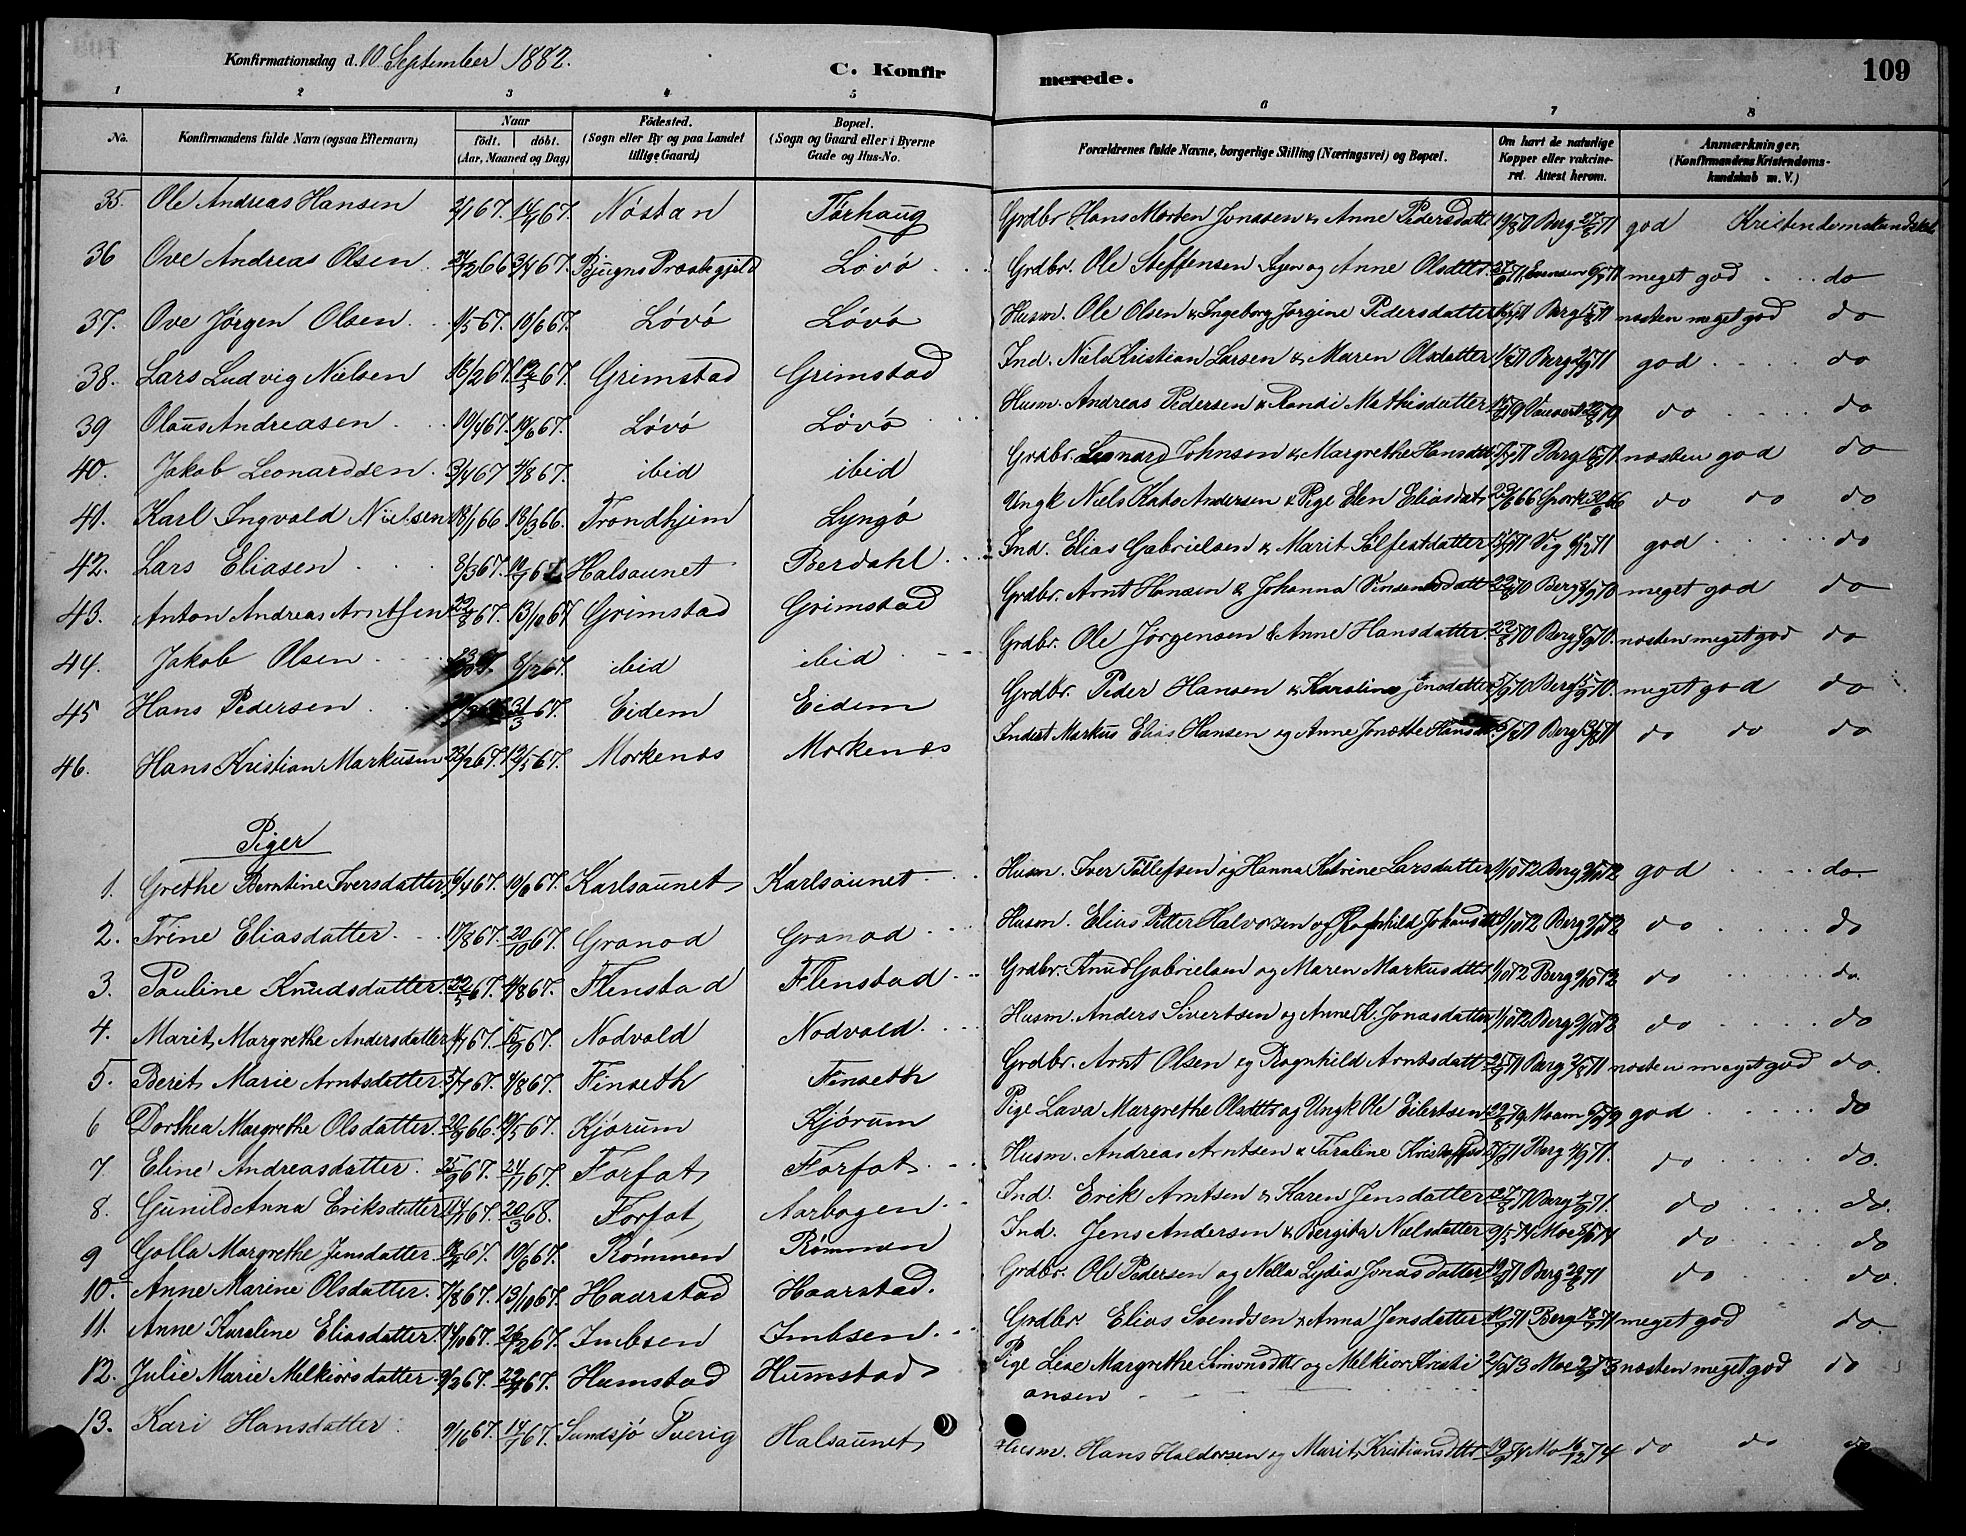 109
Konfirmationsdag d. 10 September 1882.
C. Konfirmerede.
1 2 3 4 5 6 7 8
No. Konfirmandens fulde Navn (ogsaa Efternavn) Naar født. døbt. (Aar, Maaned og Dag) Fødested. (Sogn eller By og paa Landet tillige Gaard) Bopæl. (Sogn og Gaard eller i Byerne Gade og Hus-No. Forældrenes fulde Navne, borgerlige Stilling (Næringsvei) og Bopæl. Om havt de naturlige Kopper eller vakcineret. Attest herom. Anmærkninger. (Konfirmandens Kristendomskundskab m. V.)
35. Ole Andreas Hansen Nøstan Tørhaug Grdbr. Hans Morten Jonasen & Anne Pedersdatt god Kristendomskundskab
36 Ove Andreas Olsen Bjugns Præstegjeld Løvø Grdbr. Ole Steffensen og Anne Olsdttr. meget god do
37. Ove Jørgen Olsen 10/6 67. Løvø Løvø Husm. Ole Olsen & Ingeborg Jørgine Pedersdatter Berg næsten meget god do
38. Lars Ludvig Nielsen 16/2 67. 12/5 67. Grimstad Grimstad Ind. Niels Kristian Larsen & Maren Olsdatter Berg god do
39 Olaus Andreasen 10/4 67. Løvø Løvø Husm. Andreas Pedersen & Randi Mathisdatter do do
40. Jakob Leonardsen 4/8 67. ibid ibid Grdbr. Leonard Johnsen & Margrethe Hansdatt Berg næsten god do
41. Karl Ingvald Nielsen 18/1 66. 18/3 66. Trondhjem Lyngø Ungk Niels Andersen & Pige Elen Eliasdatr do do do
42. Lars Eliasen 8/3 67. Halsaunet Berdahl Ind. Elias Gabrielsen & Marit Sølfestdatter Vig god do
43. Anton Andreas Arntsen 22/8 67. 13/10 67 Grimstad Grimstad Grdbr. Arnt Hansen & Johanna Berg meget god do
44. Jakob Olsen 8/12 67. ibid ibid Grdbr. Ole Jørgensen & Anne Hansdatter. Berg næsten meget god do
45 Hans Pedersen 31/3 67. Eidem Eidem Grdbr. Peder Hansen & Karoline Jensdatter Berg meget god do
46. Hans Kristian Markusen 12/5 67. Morkenæs Morkenæs Inderst Markus Elias Hansen og Anne Jonette Berg do do do
Piger
1. Grethe Berntine Iversdatter 6/4 67. 10/6 67. Karlsaunet Karlsaunet Husm. Iver Tøllefsen og Hanna Katrine Larsdatter Berg god do.
2. Trine Eliasdatter 17/8 67. 20/10 67. Granod Granod Husm. Elias Petter Halvorsen og Ragnhild Berg do do
3. Pauline Knudsdatter 22/5 67. 4/8 67. Flenstad Flenstad Grdbr. Knud Gabrielsen og Maren Markusdttr Berg do do.
4. Marit Margrethe Andersdatter 15/9 67. Nodvald Nodvald Husm. Anders Sivertsen og Anne K. Jonasdatter Berg do do
5. Berit Marie Arntsdatter. 4/8 67. Finseth Finseth Grdbr. Arnt Olsen og Ragnhild Arntsdatt Berg næsten meget god do.
6 Dorthea Margrethe Olsdatter. 19/5 67. Kjørum Kjørum Pige Lava Margrethe Olsdttr og Ungk Ole Eilertsen god do
7. Eline Andreasdatter. 25/9 67. 24/11 67. Forfot Forfot Husm. Andreas Arntsen & Karoline Berg do do.
8. Gunild Anna Eriksdatter 20/3 68. Forfot Aarbogen Ind. Erik Arntsen & Karen Jensdatter Berg do do.
9 Golla Margrethe Jensdatter. 10/6 67. Rømmen Rømmen Ind. Jens Andersen & Bergita Nielsdatter Moe do do
10. Anne Marine Olsdatter. 7/8 67. 13/10 67. Haarstad Haarstad. Grdbr. Ole Pedersen og Nella Lydia Jonasdatter Berg do do.
11. Anne Karoline Eliasdatter Imbsen Imbsen. Grdbr. Elias Svendsen & Anna Jensdatter Berg meget god do.
12. Julie Marie Melkiorsdatter 9/2 67. Humstad Humstad Pige Lise Margrethe Simonsdttr og Melkior Kristiansen Moe næsten meget god do
13. Kari Hansdatter 14/7 67. Sundsjø Sverig Halsaunet Husm. Hans Haldorsen og Marit Kristiansdttr do do do